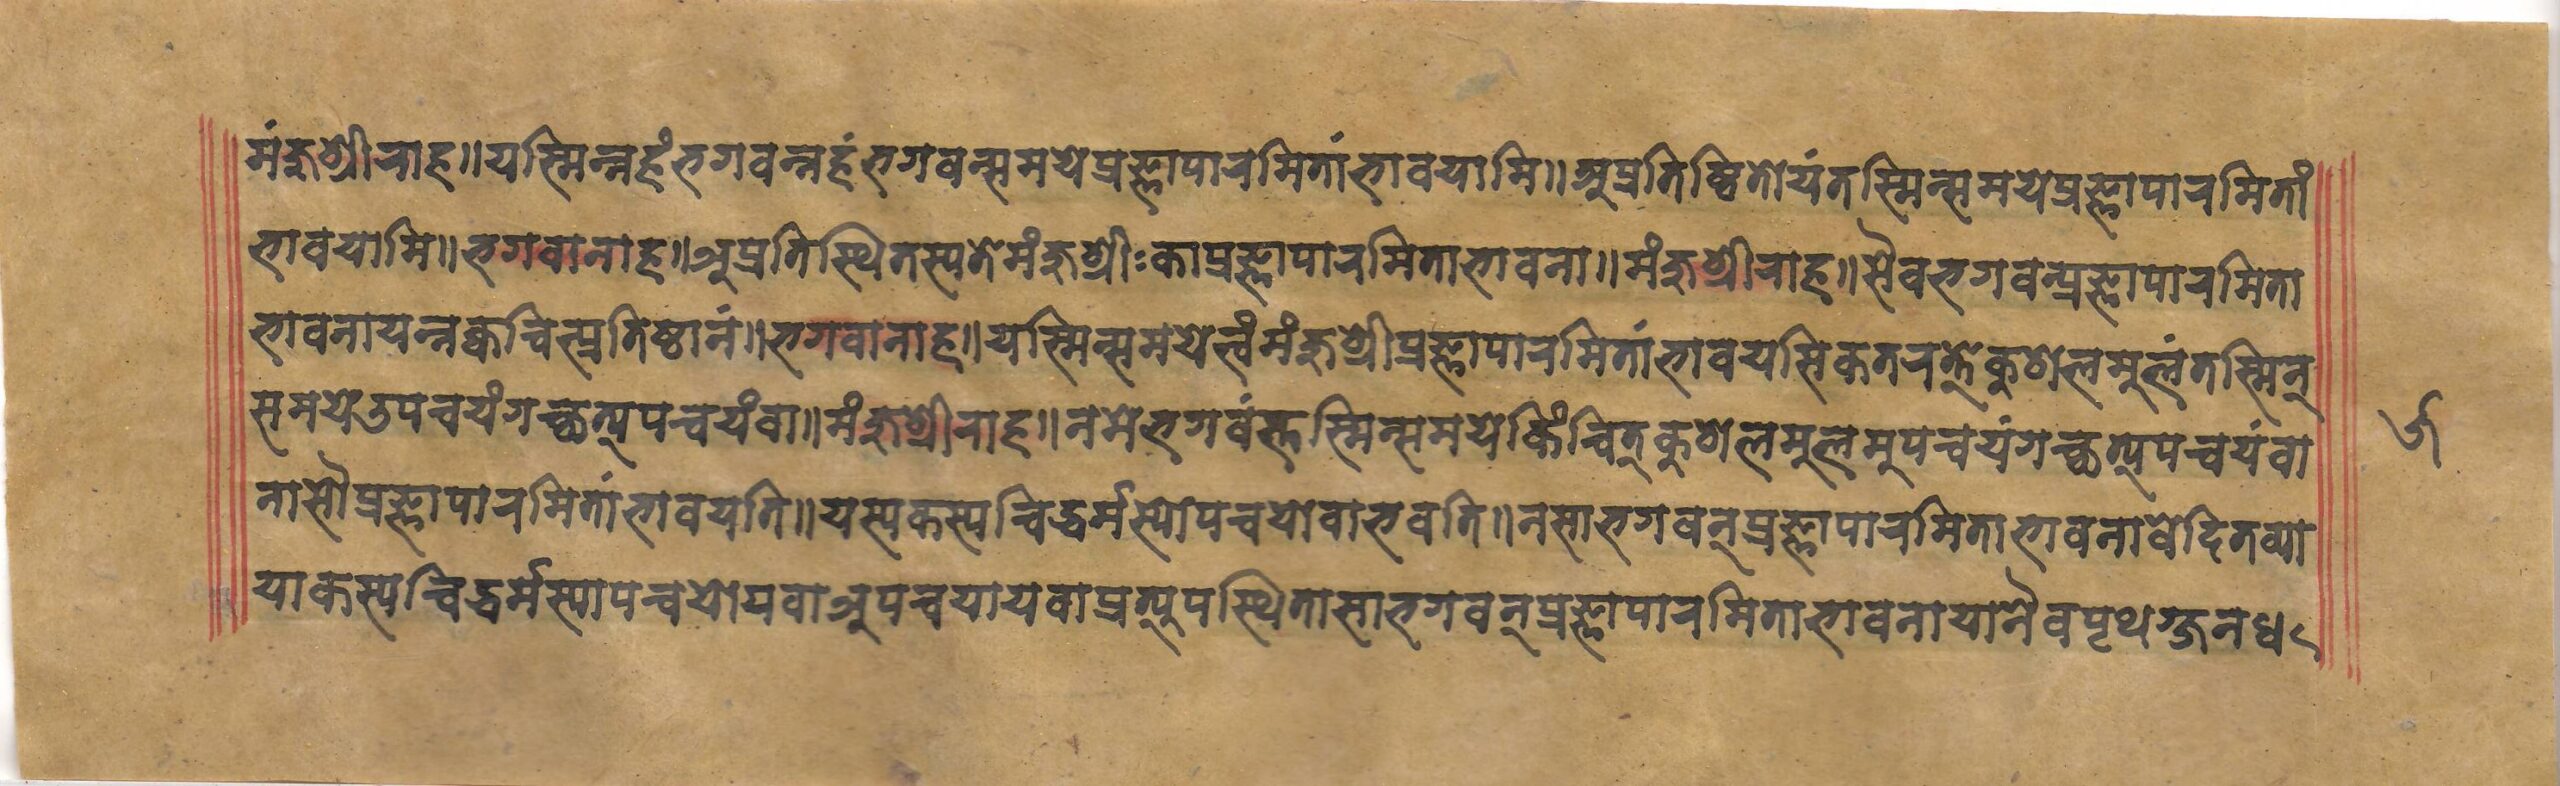 मंजुश्रीराह॥यस्मिन्नहंभगवन्नहंभगवन्समयेप्रज्ञापारमितांभावयामि॥अप्रतिष्ठितोयंतस्मिन्समयेप्रज्ञापारमितां
भावयामि॥भगवानाह॥अप्रतिस्थितस्यतेमंजुश्रीःकाप्रज्ञापारमिताभावना॥मंजुश्रीराह॥सैवभगवन्प्रज्ञापारमिता
भावनायन्नक्वचित्प्रतिष्ठानं॥भगवानाह॥यस्मिन्समयेत्वंमंजुश्रीप्रज्ञापारमितांभावयसिकतरत्तेकुशलमुलंतस्मिन्
समयेउपचयंगच्छत्यपचयंवा॥मंजुश्रीराह॥नमेभगवंस्तस्मिन्समयेकिंचित्कुशलमुलमुपचयंगच्छत्यपचयंवा
नासौप्रज्ञापारमितांभावयति॥यस्यकस्यचिद्धर्मस्योपचयोवाभवति॥नसाभगवन्प्रज्ञापारमिताभावनावेदितव्या
याकस्यचिद्धर्मस्यापचयोयवाअपचयायवाप्रत्युपस्थितासाभगवन्प्रज्ञापारमिताभावनायानैवपृथग्जनध